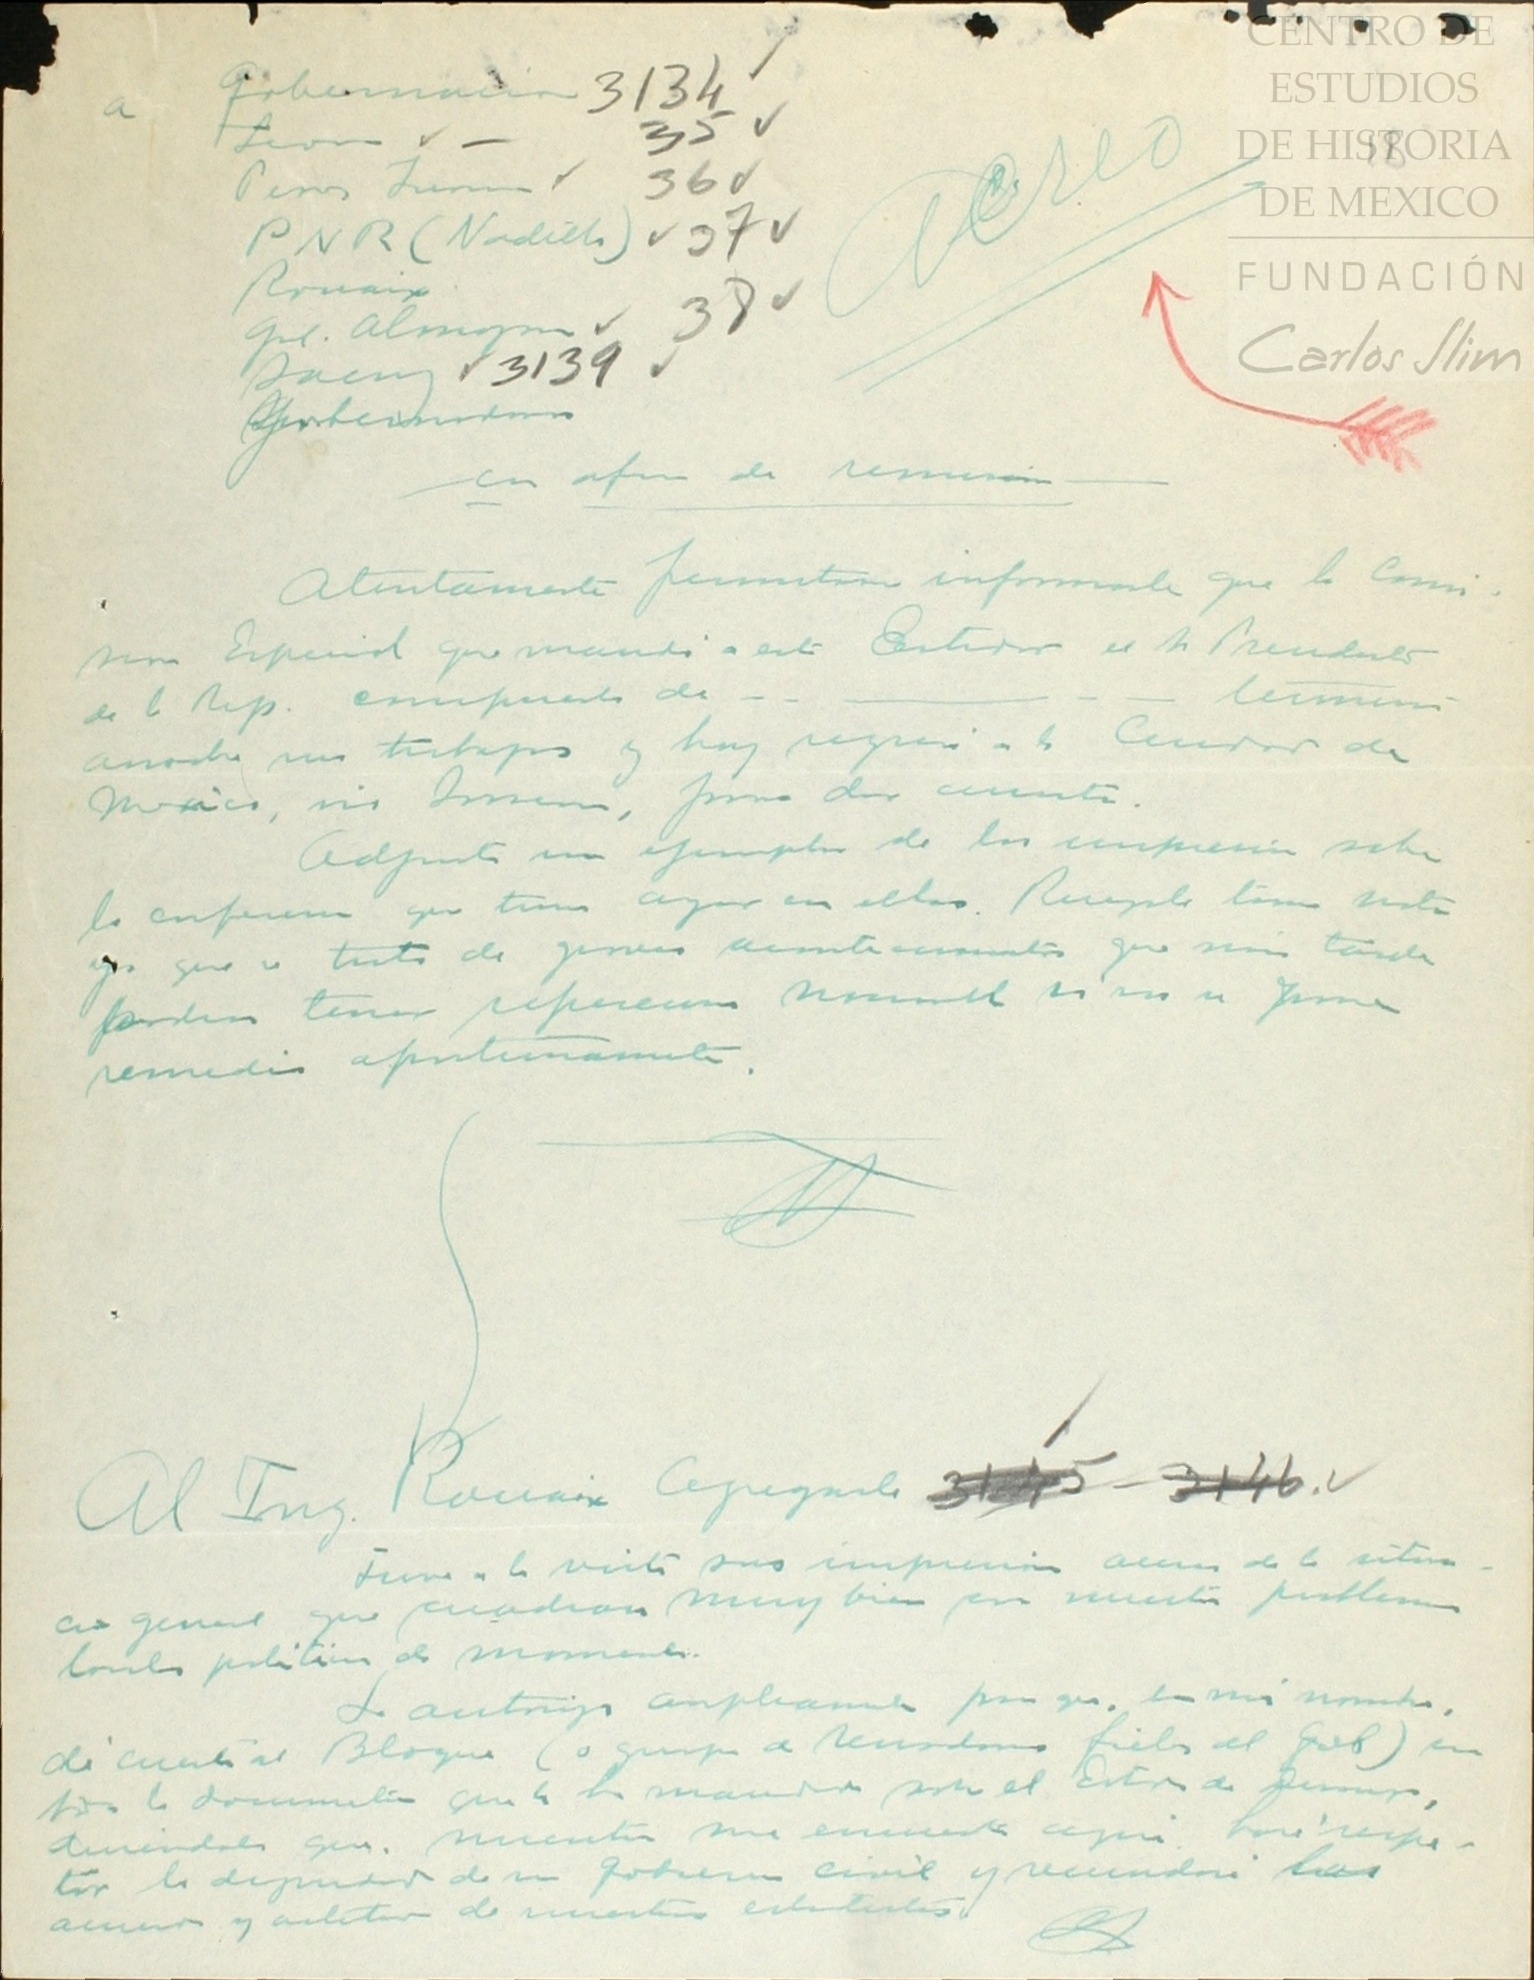 CENTRO DE
ESTUDIOS
DE HISTORIA
DE MEXICO
FUNDACIÓN
Carlos Slim
18
a Gobernacion 3134
Leon 35
Perez Trevino 36
PNR (Nadilla) 37
Rouaix
Gral. Almazan 38
Saenz 3139
Gobernadores
Aereo
en ofo de remision
Atentamente permitome informarle que la Comi-
sion Especial que mandó a este Estado el Sr Presidente
de la Rep. compuesta de - - - - terminó
anoche sus trabajos y hoy regresó a la Ciudad de
Mexico, via Torreon, para dar cuenta.
Adjunto un ejemplar de las impresion sobre
la conferencia que tuve ayer con ellos. Ruegole tome nota
ya que se trata de graves acontecimientos que mas tarde
pueden tener repercusion nacional si no se pone
remedio oportunamente.
Al Ing. Rouaix Agreguesele 3145 - 3146.
Tuve a la vista sus impresiones acerca de la situa-
cion general que cuadran muy bien con nuestro problema
local politico de momento.
Lo autorizo ampliamente para que, en mi nombre,
dé cuenta al Bloque (o grupo de senadores fieles al Gob) con
toda la documentacion que le he mandado sobre el Estado de Durango,
diciendoles que, mientras me encuentre aqui haré respe-
tar la dignidad de un Gobierno civil y
y de nuestros